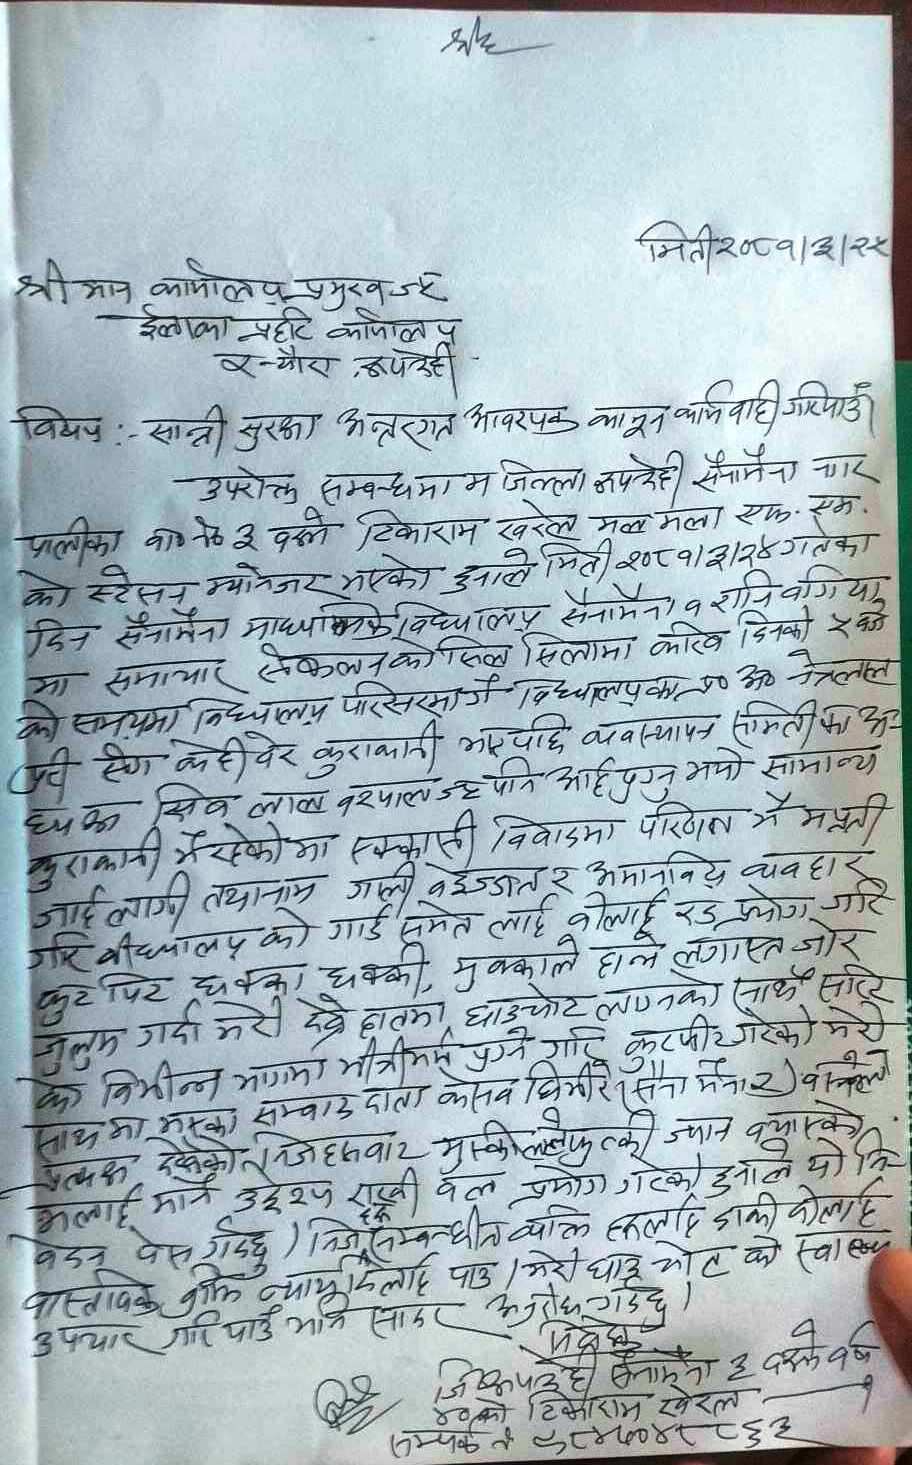 मिती २०८१/३/२५
श्रीमान कार्यालय प्रमुख ज्यू
ईलाका प्रहरी कार्यालय
रुपन्देही
विषय :- सान्ती सुरक्षा अन्तरगत आवश्यक कानून कार्यवाही गरिपाउँ
उपरोक्त सम्बन्धमा म जिल्ला रुपन्देही सैनामैना नगर
पालीका वा०नं० ३ बस्ने टिकाराम खरेल मलमला एफ. एम.
को स्टेसन म्यानेजर भएको हुनाले मिती २०८१/३/२४ गतेका
दिन सैनामैना माध्यामिक विध्यालय सैनामैना ९
मा समाचार संकलनको सिल सिलामा करिव दिनको २ बजे
को समयमा विध्यालय परिसरमा विध्यालयका प्र० अ०
संग केही वेर कुराकानी भएपछि व्यवस्थापन समितीका अ
ध्यक्ष सिव लाल ज्यू पनि आईपुग्नु भयो सामान्य
कुराकानी भैरहेको मा एक्कासी विवादमा परिणत भै म प्रती
जाई लागी तथानाम गाली वेइज्जत र अमानविय व्यवहार
गरि वीध्यालय को गार्ड समेत लाई वोलाई रड प्रयोग गरि
कुट पिट धक्का धक्की, मुक्काले हान्ने लगाएत जोर
जुलुम गर्दा मेरो देब्रे हातमा घाउचोट लागेको साथै सरिर
को विभीन्न भागमा भीत्रीमर्म पुग्ने गरि कुटपीट गरेको मेरो
साथ मा भएका सम्वाद दाता केसव घिमीरे (सैनामैना २) वस्नेले
प्रत्यक्ष देखेको निजहरुबाट मुस्कीलले फुत्की ज्यान बचाएको
मलाई मार्ने उद्देश्य राखी वल प्रयोग गरेको हुनाले यो नि
वेदन पेस गर्दछु । निज सम्वन्धीत व्यक्ति हरुलाई डाकी वोलाई
वास्तविक बुझि न्याय दिलाई पाउ । मेरो घाउ चोट को स्वास्थ्य
उपचार गरि पाउँ भनि सादर अनुरोध गर्दछु ।
निवेदक
जि रुपन्देही सैनामैना ३ वस्ने वर्ष
४० को टिकाराम खरेल १
सम्पर्क नं